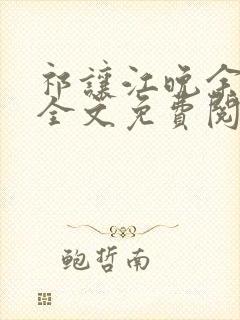 祁讓江晚余
全文免費閱
鲍哲南